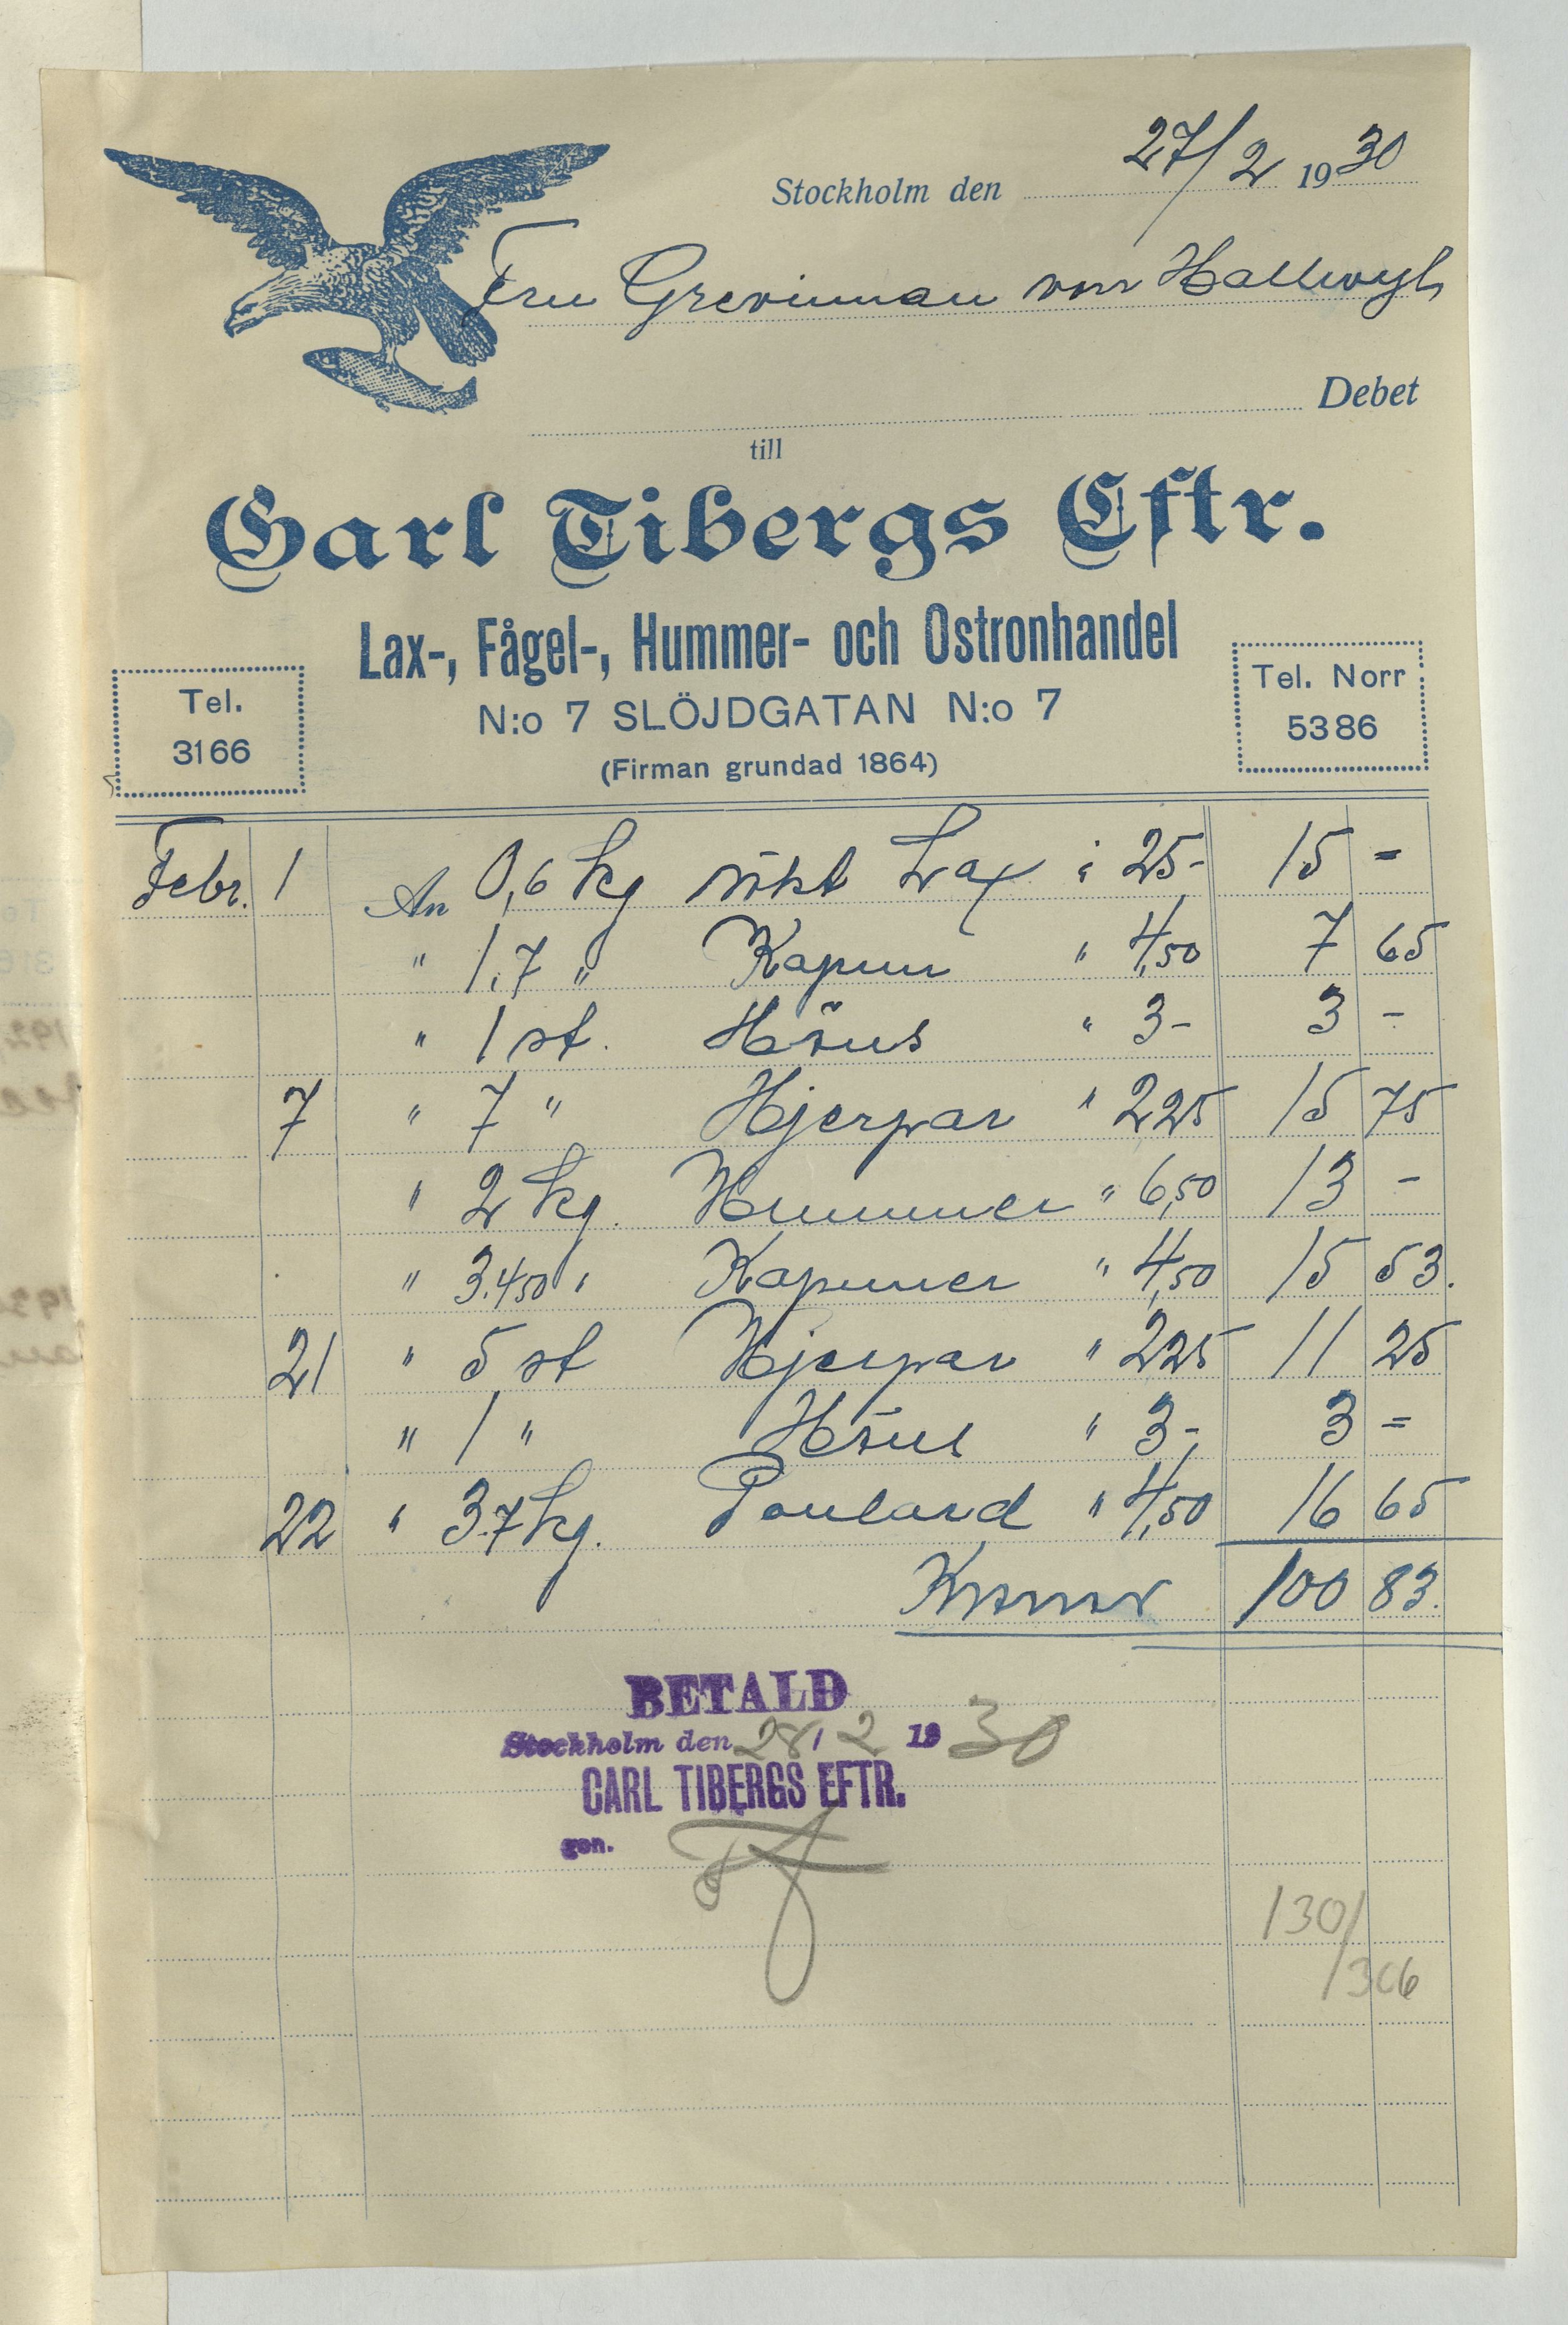 Stockholm den 27/2 1930
Fru Grevinnan von Hallwyl
Debet
till
Carl Tibergs Eftr.
Lax-, Fågel-, Hummer- och Ostronhandel
N:o 7 SLÖJDGATAN N:o 7
(Firman grundad 1864)
Tel.
3166
Tel. Norr
5386
Febr. 1 An 0,6 kg rökt Lax à 25- 15 =
" 1,7 " Kapun " 4,50 7 65
" 1 st. Höns " 3- 3 -
7 " 7 " Hjerpar " 2 25 15 75
" 2 kg. Hummer " 6,50 13 -
" 3.450 " Kapuner " 4,50 15 53.
21 " 5 st Hjerpar " 2 25 11 25
" 1 " Höns " 3- 3 =
22 " 3.7 kg. Poulard " 4,50 16 65
Kronor 100 83.
BETALD
Stockholm den 28/2 1930
CARL TIBERGS EFTR.
gen.
130/
1306